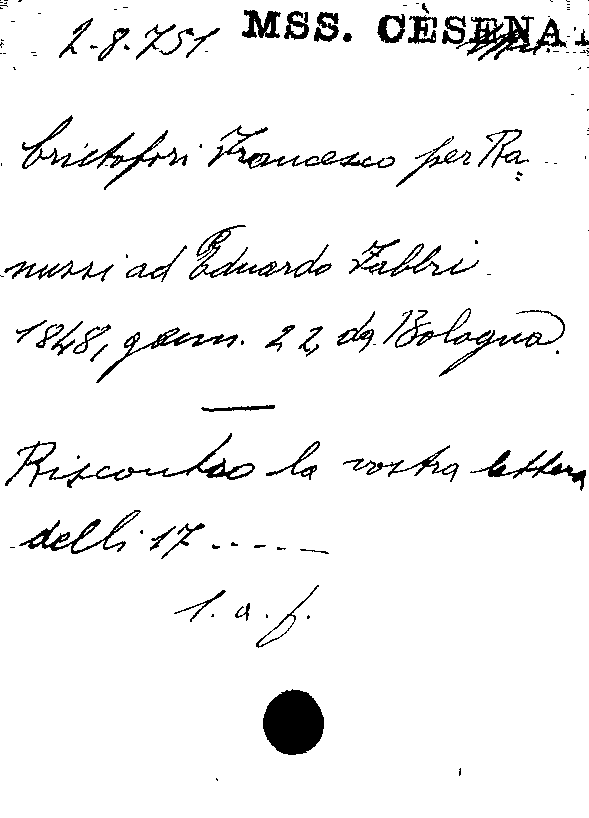 2-8.751 MSS. CÈSENA
Cristofori Francesco per Ra=
nussi ad Eduardo Fabbri
1848, genn. 22, da Bologna.
Riscontro la vostra lettera
delli 17 .....
l. a. f.